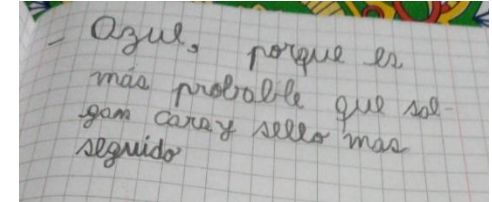 - Azul, porque es
más probable que sal-
gan cara y sello mas
seguido